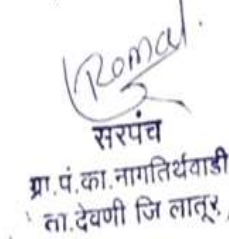 सरपंच
ग्रा.पं.का.नागतिर्थवाडी
ता.देवणी जि लातूर